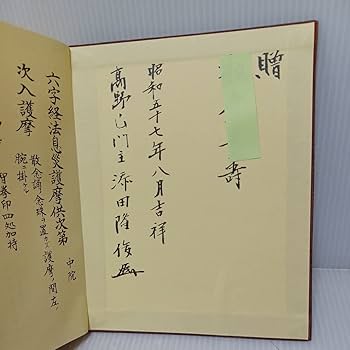 贈
寿
昭和五十七年八月吉祥
高野山門主添田隆俊
六字経法息災護摩供次第
中院
次入護摩
散念誦念珠ヲ置テ護摩ノ間左ノ
腕ニ掛ク
智拳印四処加持